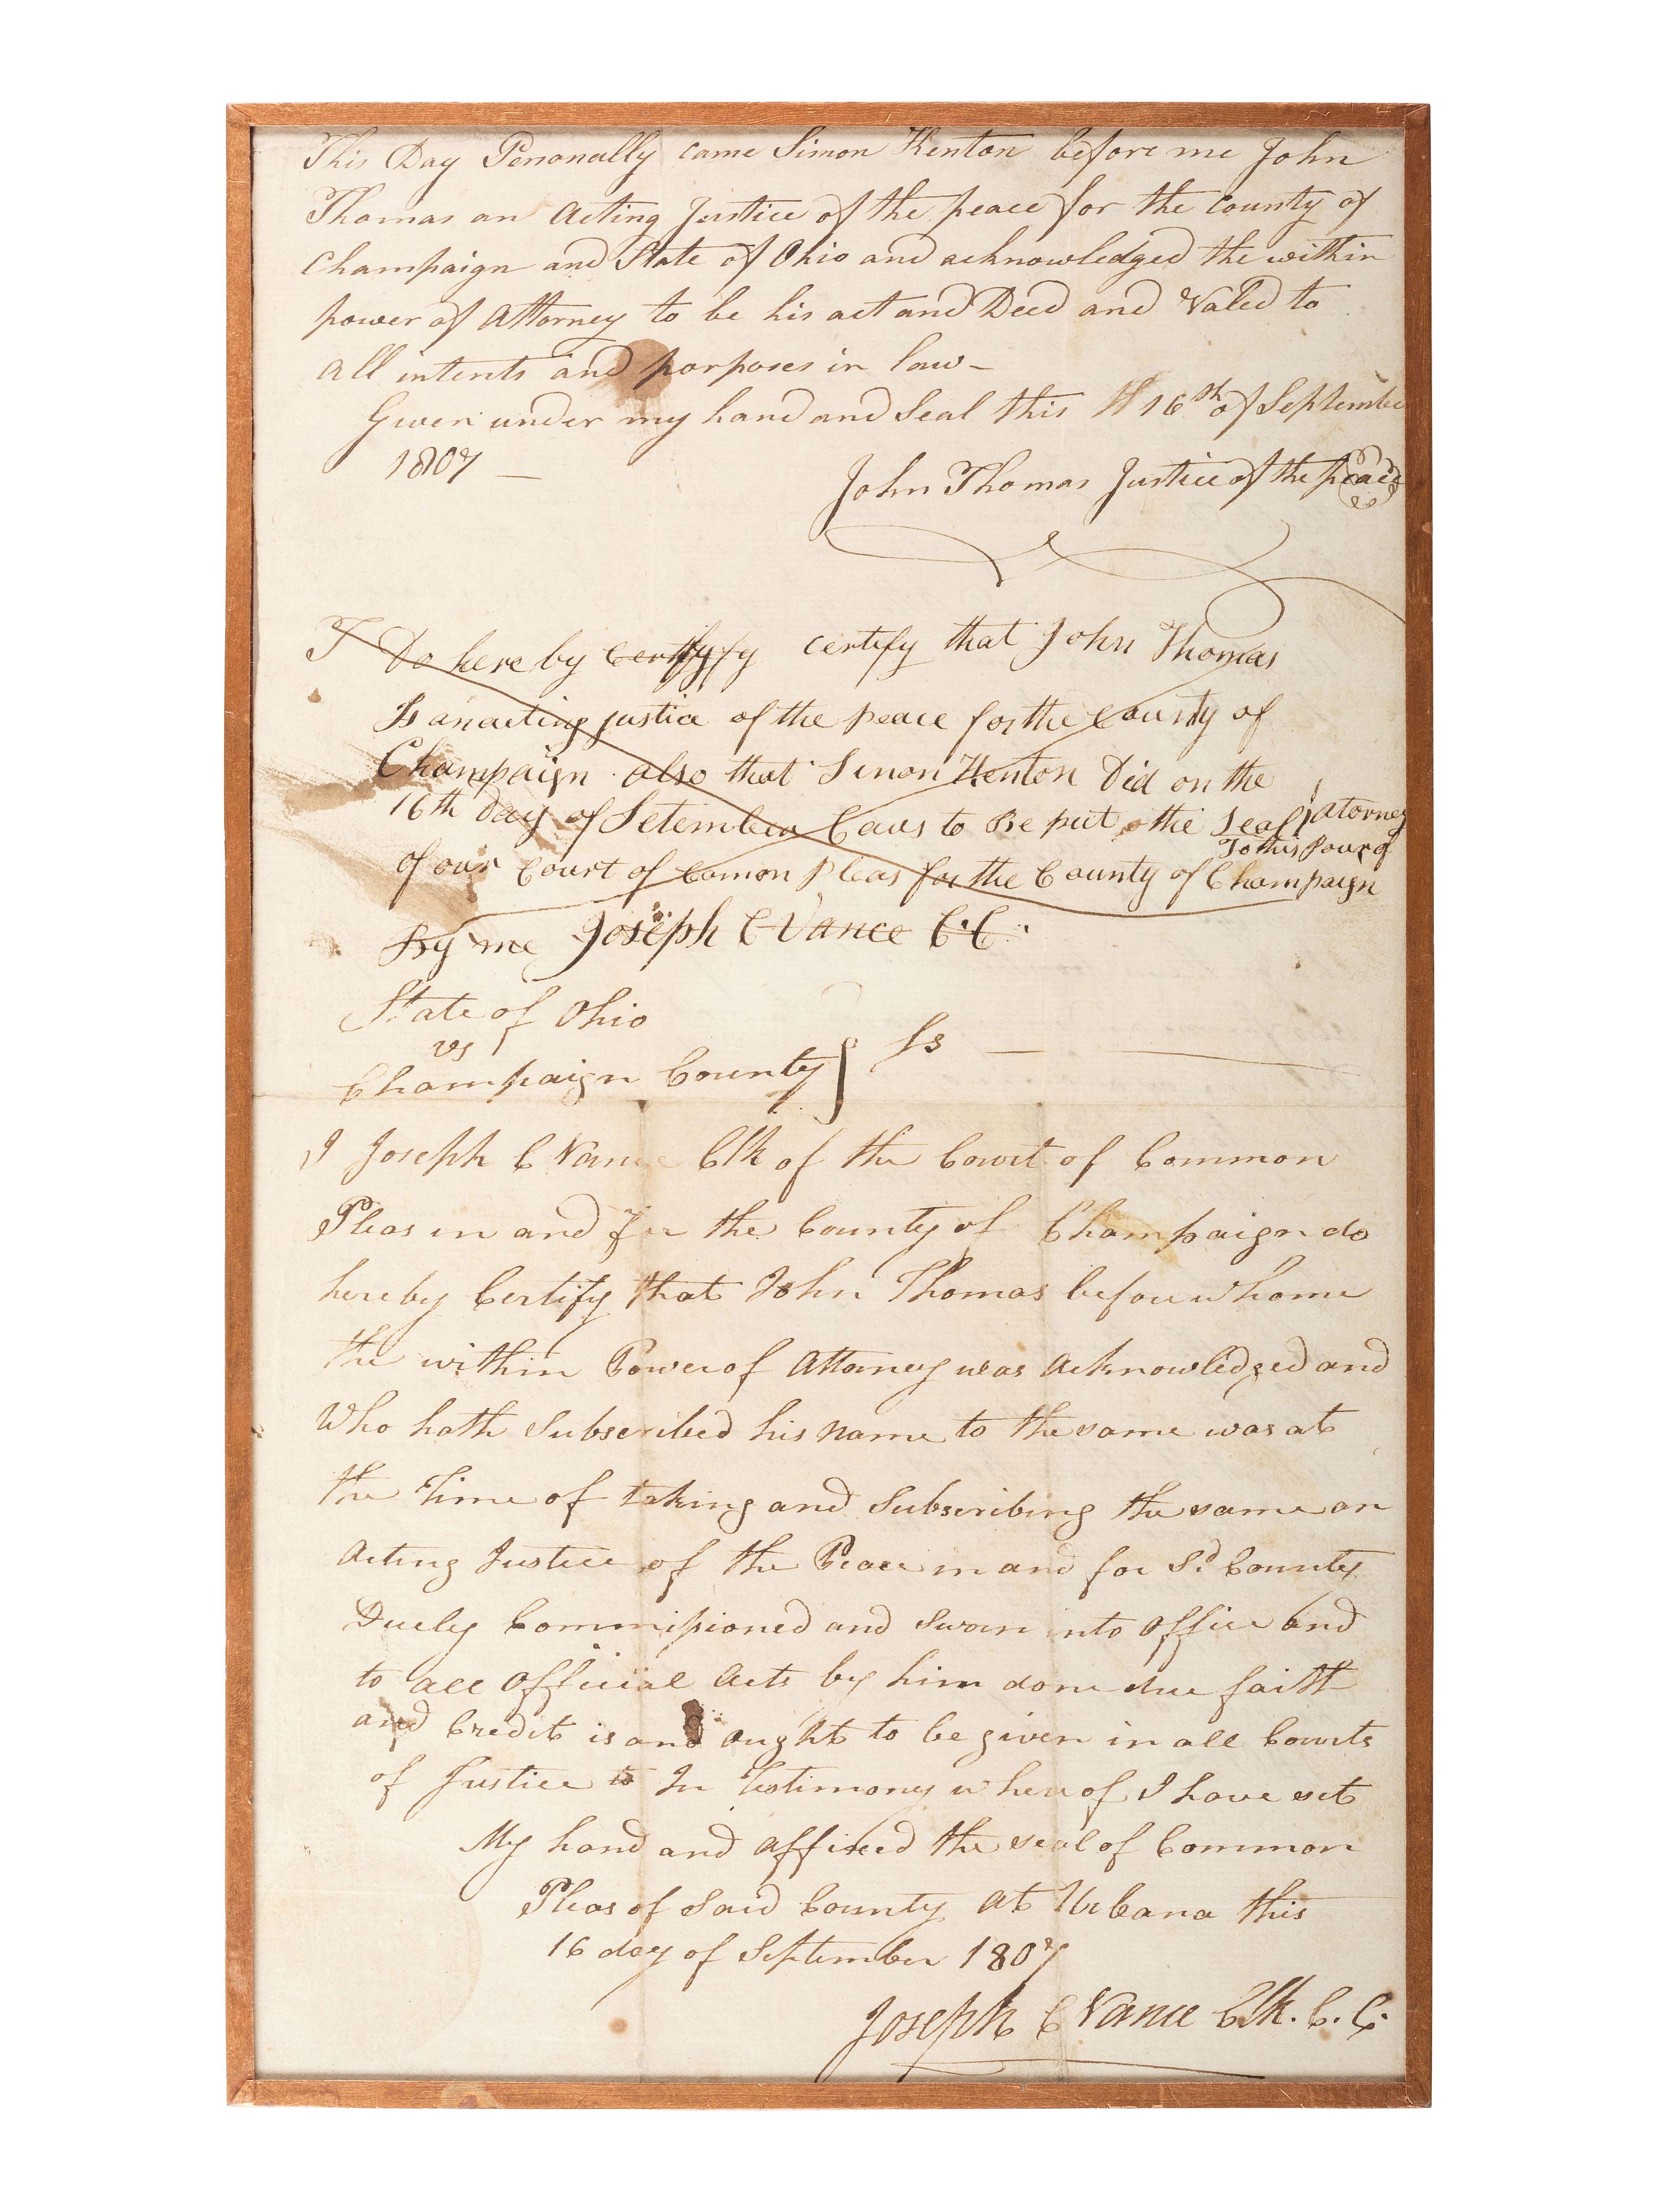 This Day Personally came Simon Kenton before me John
Thomas an Acting Justice of the peace for the County of
Champaign and State of Ohio and acknowledged the within
power of Attorney to be his act and Deed and Valed to
all intents and porposes in law-
Given under my hand and Seal this 16th of September
1807 —
John Thomas Justice of the peace
I Do here by certify that John Thomas
Is an acting justice of the peace for the County of
Champaign also that Simon Kenton Did on the
16th Day of Setember Caus to Be put the Seal Atorney
To this Pour of
of our Court of Comon Pleas for the County of Champaign
By me Joseph C Vance C.C.
State of Ohio
vs
Champaign County } Ss —
I Joseph C Vance Clk of the Court of Common
Pleas in and for the County of Champaign do
hereby Certify that John Thomas before whome
the within Power of Attorney was Acknowledged and
Who hath Subscribed his Name to the same was at
the Time of taking and Subscribing the same an
Acting Justice of the Peace in and for Sd County
Duely Commissioned and Sworn into Office and
to all Official Acts by him done due faith
and Credit is and ought to be given in all Courts
of Justice In Testimony whereof I have set
My hand and affixed the seal of Common
Pleas of Said County At Urbana this
16 day of September 1807
Joseph C Vance Clk. C. C.